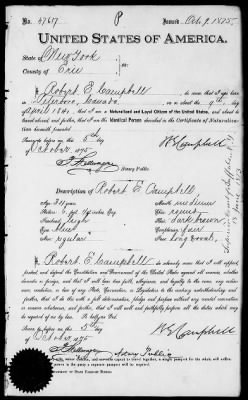 No. 47657 P Issued Oct. 9, 1875.
UNITED STATES OF AMERICA.
State of New York
County of Erie
I, Robert E. Campbell
Canada, on or about the 9th day
April 1841; that I am a Naturalized and Loyal Citizen of the United States, and about to
travel abroad; and further, that I am the Identical Person described in the Certificate of Naturalization
herewith presented.
Sworn to before me this 5th day
of October, 1875
R E Campbell
Notary Public.
Description of Robert E. Campbell,
Age: 34 years
Mouth: medium
Stature: 5 feet inches Eng.
Chin: round
Forehead: high
Hair: Dark brown
Eyes: Blue
Complexion: fair
Nose: regular
Face: Long & oval
I, Robert E. Campbell, do solemnly swear that I will support,
protect, and defend the Constitution and Government of the United States against all enemies, whether
domestic or foreign; and that I will bear true faith, allegiance, and loyalty to the same, any ordinance,
resolution, or law of any State, Convention, or Legislature to the contrary notwithstanding; and
further, that I do this with a full determination, pledge and purpose, without any mental reservation
or evasion whatsoever; and further, that I will well and faithfully perform all the duties which may be
required of me by law. So help me God.
Sworn to before me this 5th day
of October 1875
R E Campbell
Notary Public